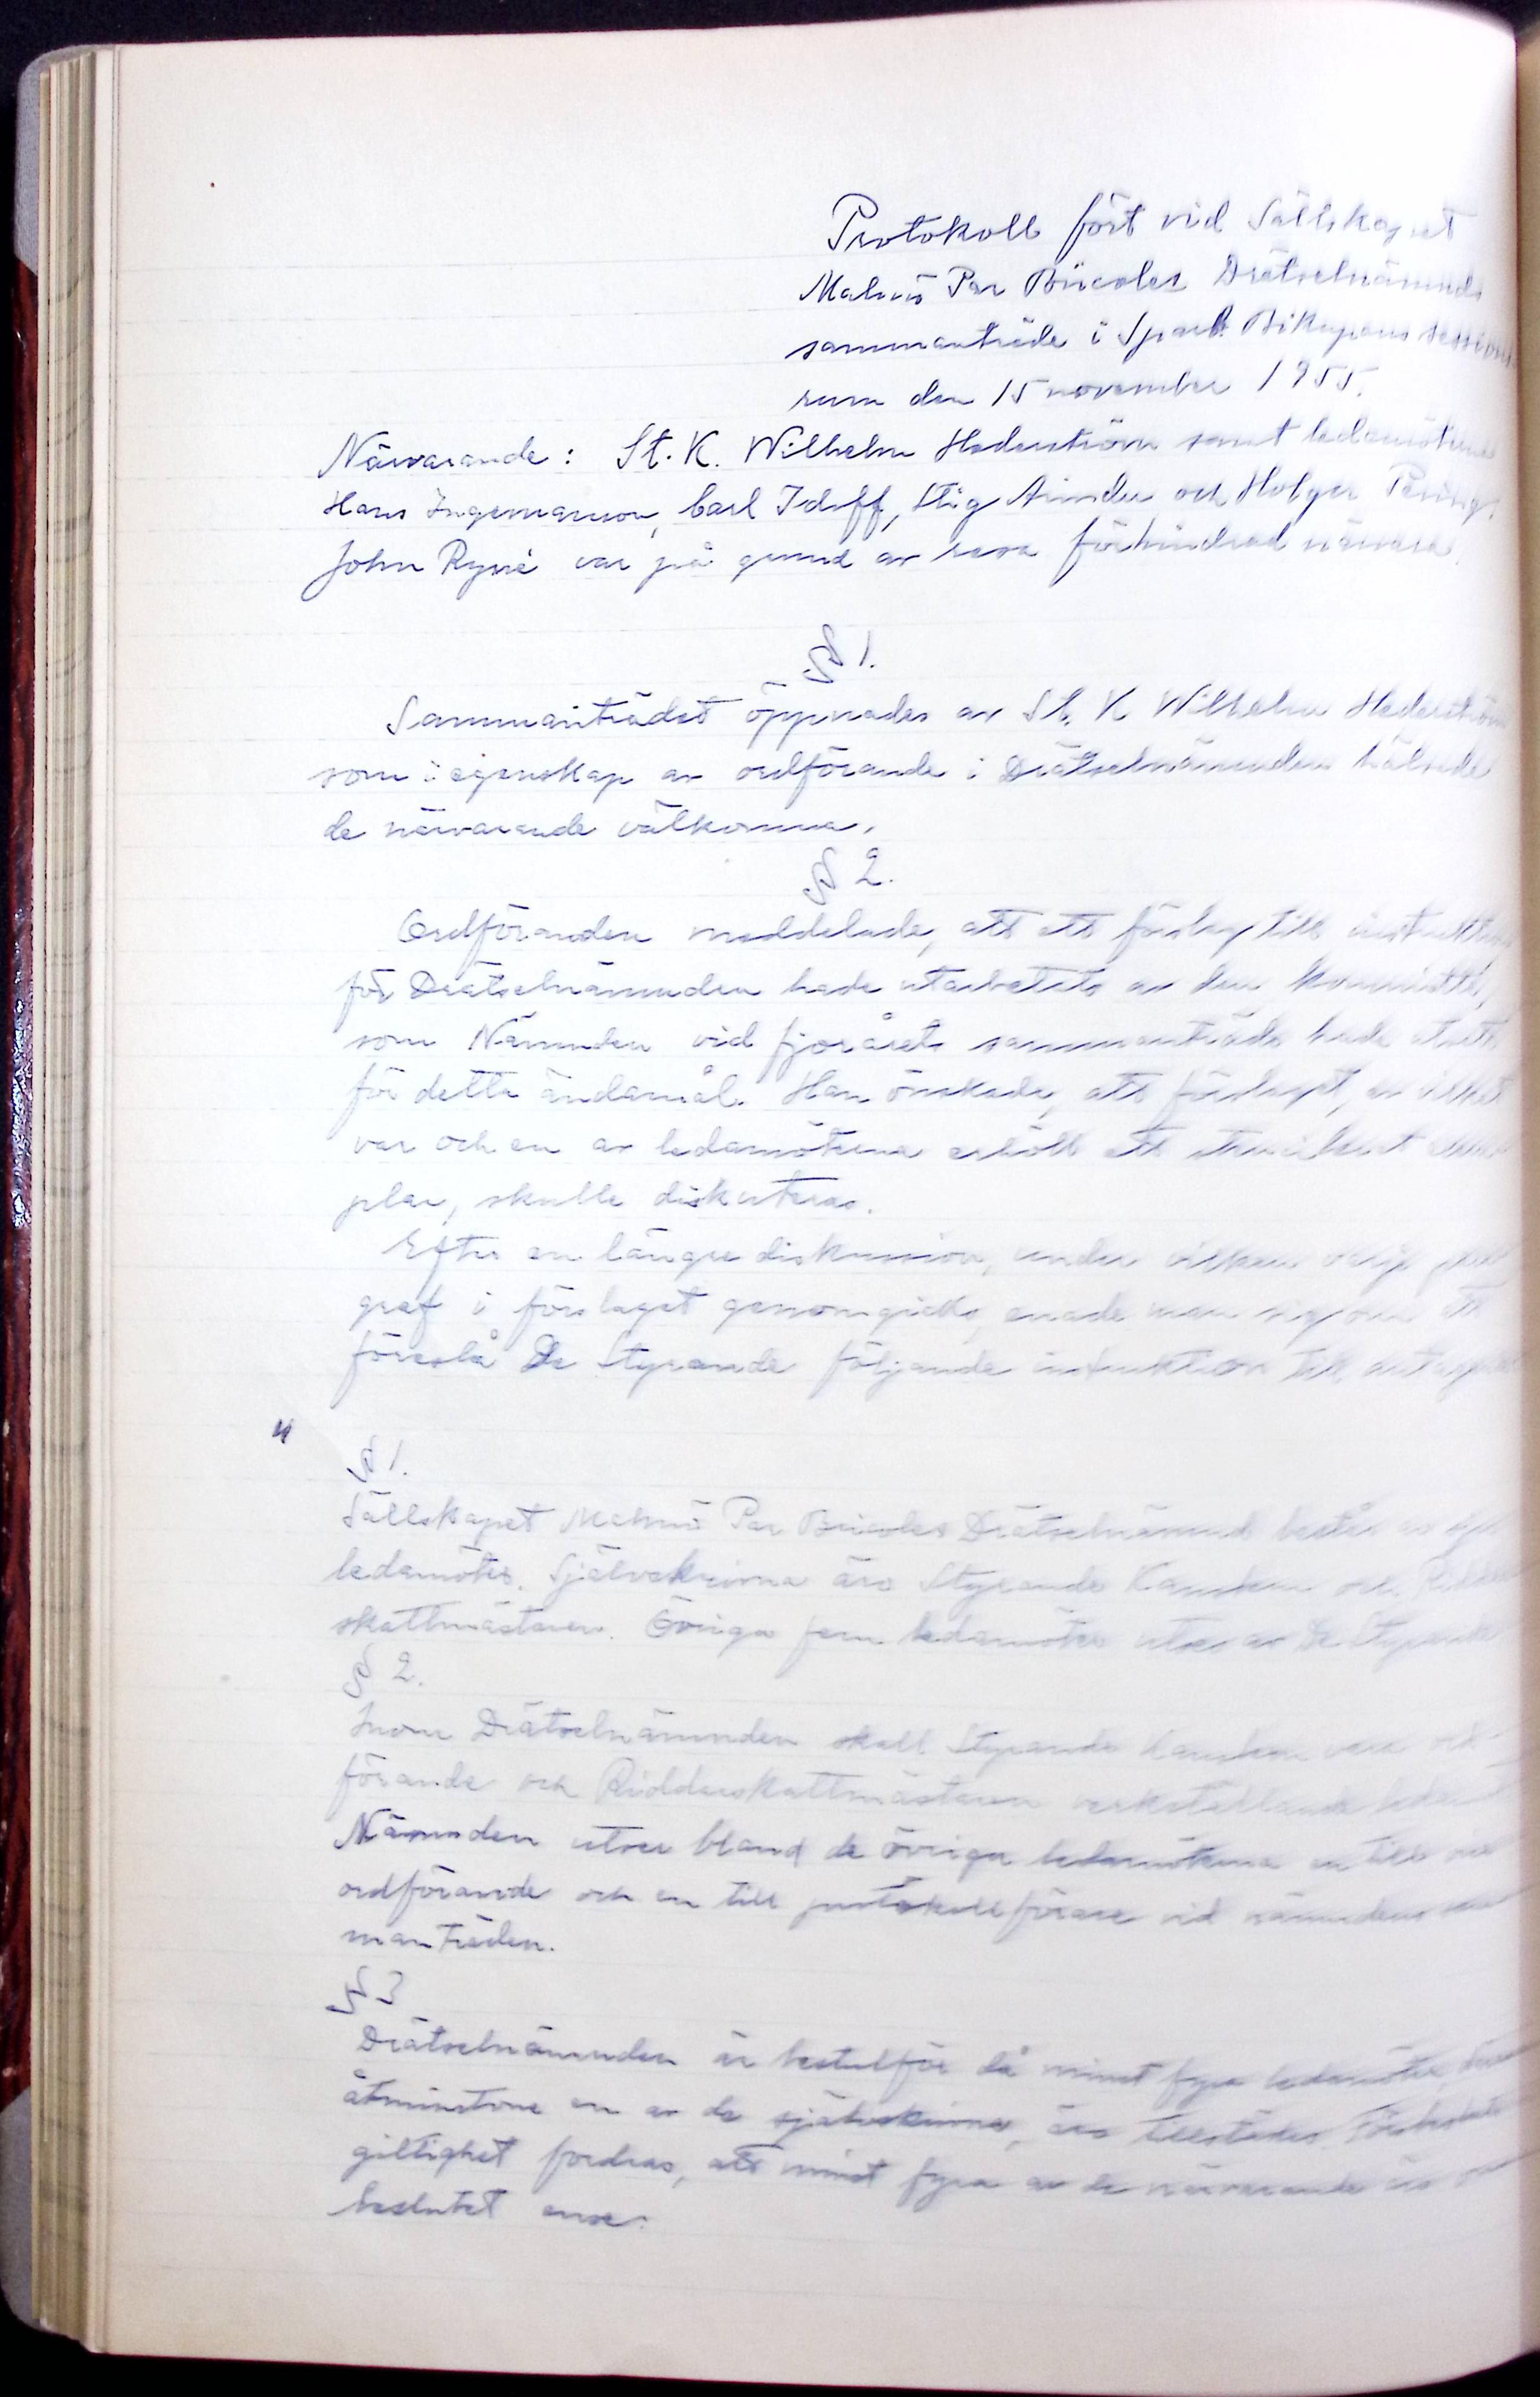 Protokoll fört vid Sällskapet
Malmö Par Bricoles Drätselnämnds
sammanträde i Sparb. Bikupans sessions
rum den 15 november 1955.
Närvarande: St. K. Wilhelm Hederström samt ledamöterna
Hans Ingemarson, Carl Idoff, Stig Arinder och Holger
John Ryné var på grund av resa förhindrad närvara.
§ 1.
Sammanträdet öppnades av St. K Wilhelm Hederström
som i egenskap av ordförande i Drätselnämnden hälsade
de närvarande välkomna.
§ 2.
Ordföranden meddelade, att ett förslag till instruktion
för Drätselnämnden hade utarbetats av den kommitté,
som Nämnden vid fjorårets sammanträde hade utsett
för detta ändamål. Han önskade, att förslaget, av vilket
var och en av ledamöterna erhållit ett utskrivet exem
plar, skulle diskuteras.
Efter en längre diskussion, under vilken varje para
graf i förslaget genomgicks, enade man sig om att
föreslå De Styrande följande instruktion till antagande
"
§ 1.
Sällskapet Malmö Par Bricoles Drätselnämnd består av sju
ledamöter. Självskrivna äro Styrande Kansleren och Riddar
skattmästaren. Övriga fem ledamöter utses av De Styrande
§ 2.
Inom Drätselnämnden skall Styrande Kansleren vara ord-
förande och Riddarskattmästaren verkställande ledamot
Nämnden utser bland de övriga ledamöterna en till vice
ordförande och en till protokollförare vid nämndens sam
manträden.
§ 3
Drätselnämnden är beslutför då minst fyra ledamöter,
åtminstone en av de självskrivna, äro tillstädes. För besluts
giltighet fordras, att minst fyra av de närvarande äro om
beslutet ense.